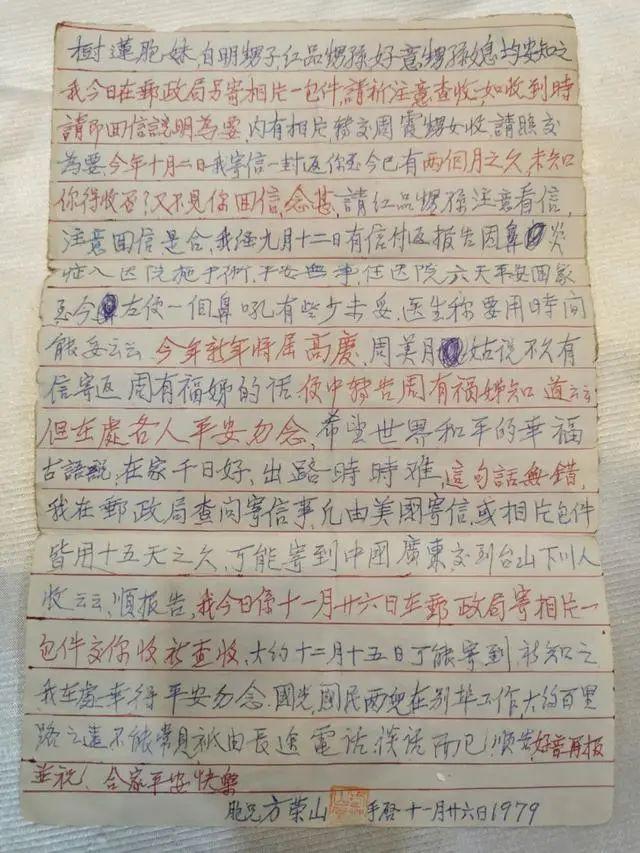 樹蓮胞妹,自明甥子,紅品甥孫,好意甥孫媳均安知之
我今日在郵政局另寄相片一包件,請祈注意查收,如收到時
請即回信說明為要,內有相片轉交周霞甥女收,請照交
為要,今年十月二日我寄信一封返你至今已有兩個月之久,未知
你得收否?又不見你回信,念甚,請紅品甥孫注意看信,
注意回信是合,我經九月十二日有信付返報告因鼻炎
症入医院施手術,平安無事,住医院六天平安回家
至今左便一個鼻吼有些少未妥,医生称要用時間
能妥云云,今年新年將屆高慶,周美月姑说不久有
信寄返周有福娣的话,便中轉告周有福娣知道云云
但在處各人平安勿念,希望世界和平的幸福
古語說,在家千日好,出路一時時難,這句話無錯,
我在郵政局查问寄信事,凢由美國寄信,或相片包件
皆用十五天之久,可能寄到中國廣東交到台山下川人
收云云,順报告,我今日係十一月廿六日在郵政局寄相片一
包件交你收祈查收,大約十二月十五日可能寄到祈知之
我在處幸得平安勿念,國光,國民兩兒在别埠工作,大約百里
路之遠不能常見祇由長途電话談话而已,順告,好音再报
並祝,合家平安快樂
胞兄方荣山 手啓十一月廿六日1979